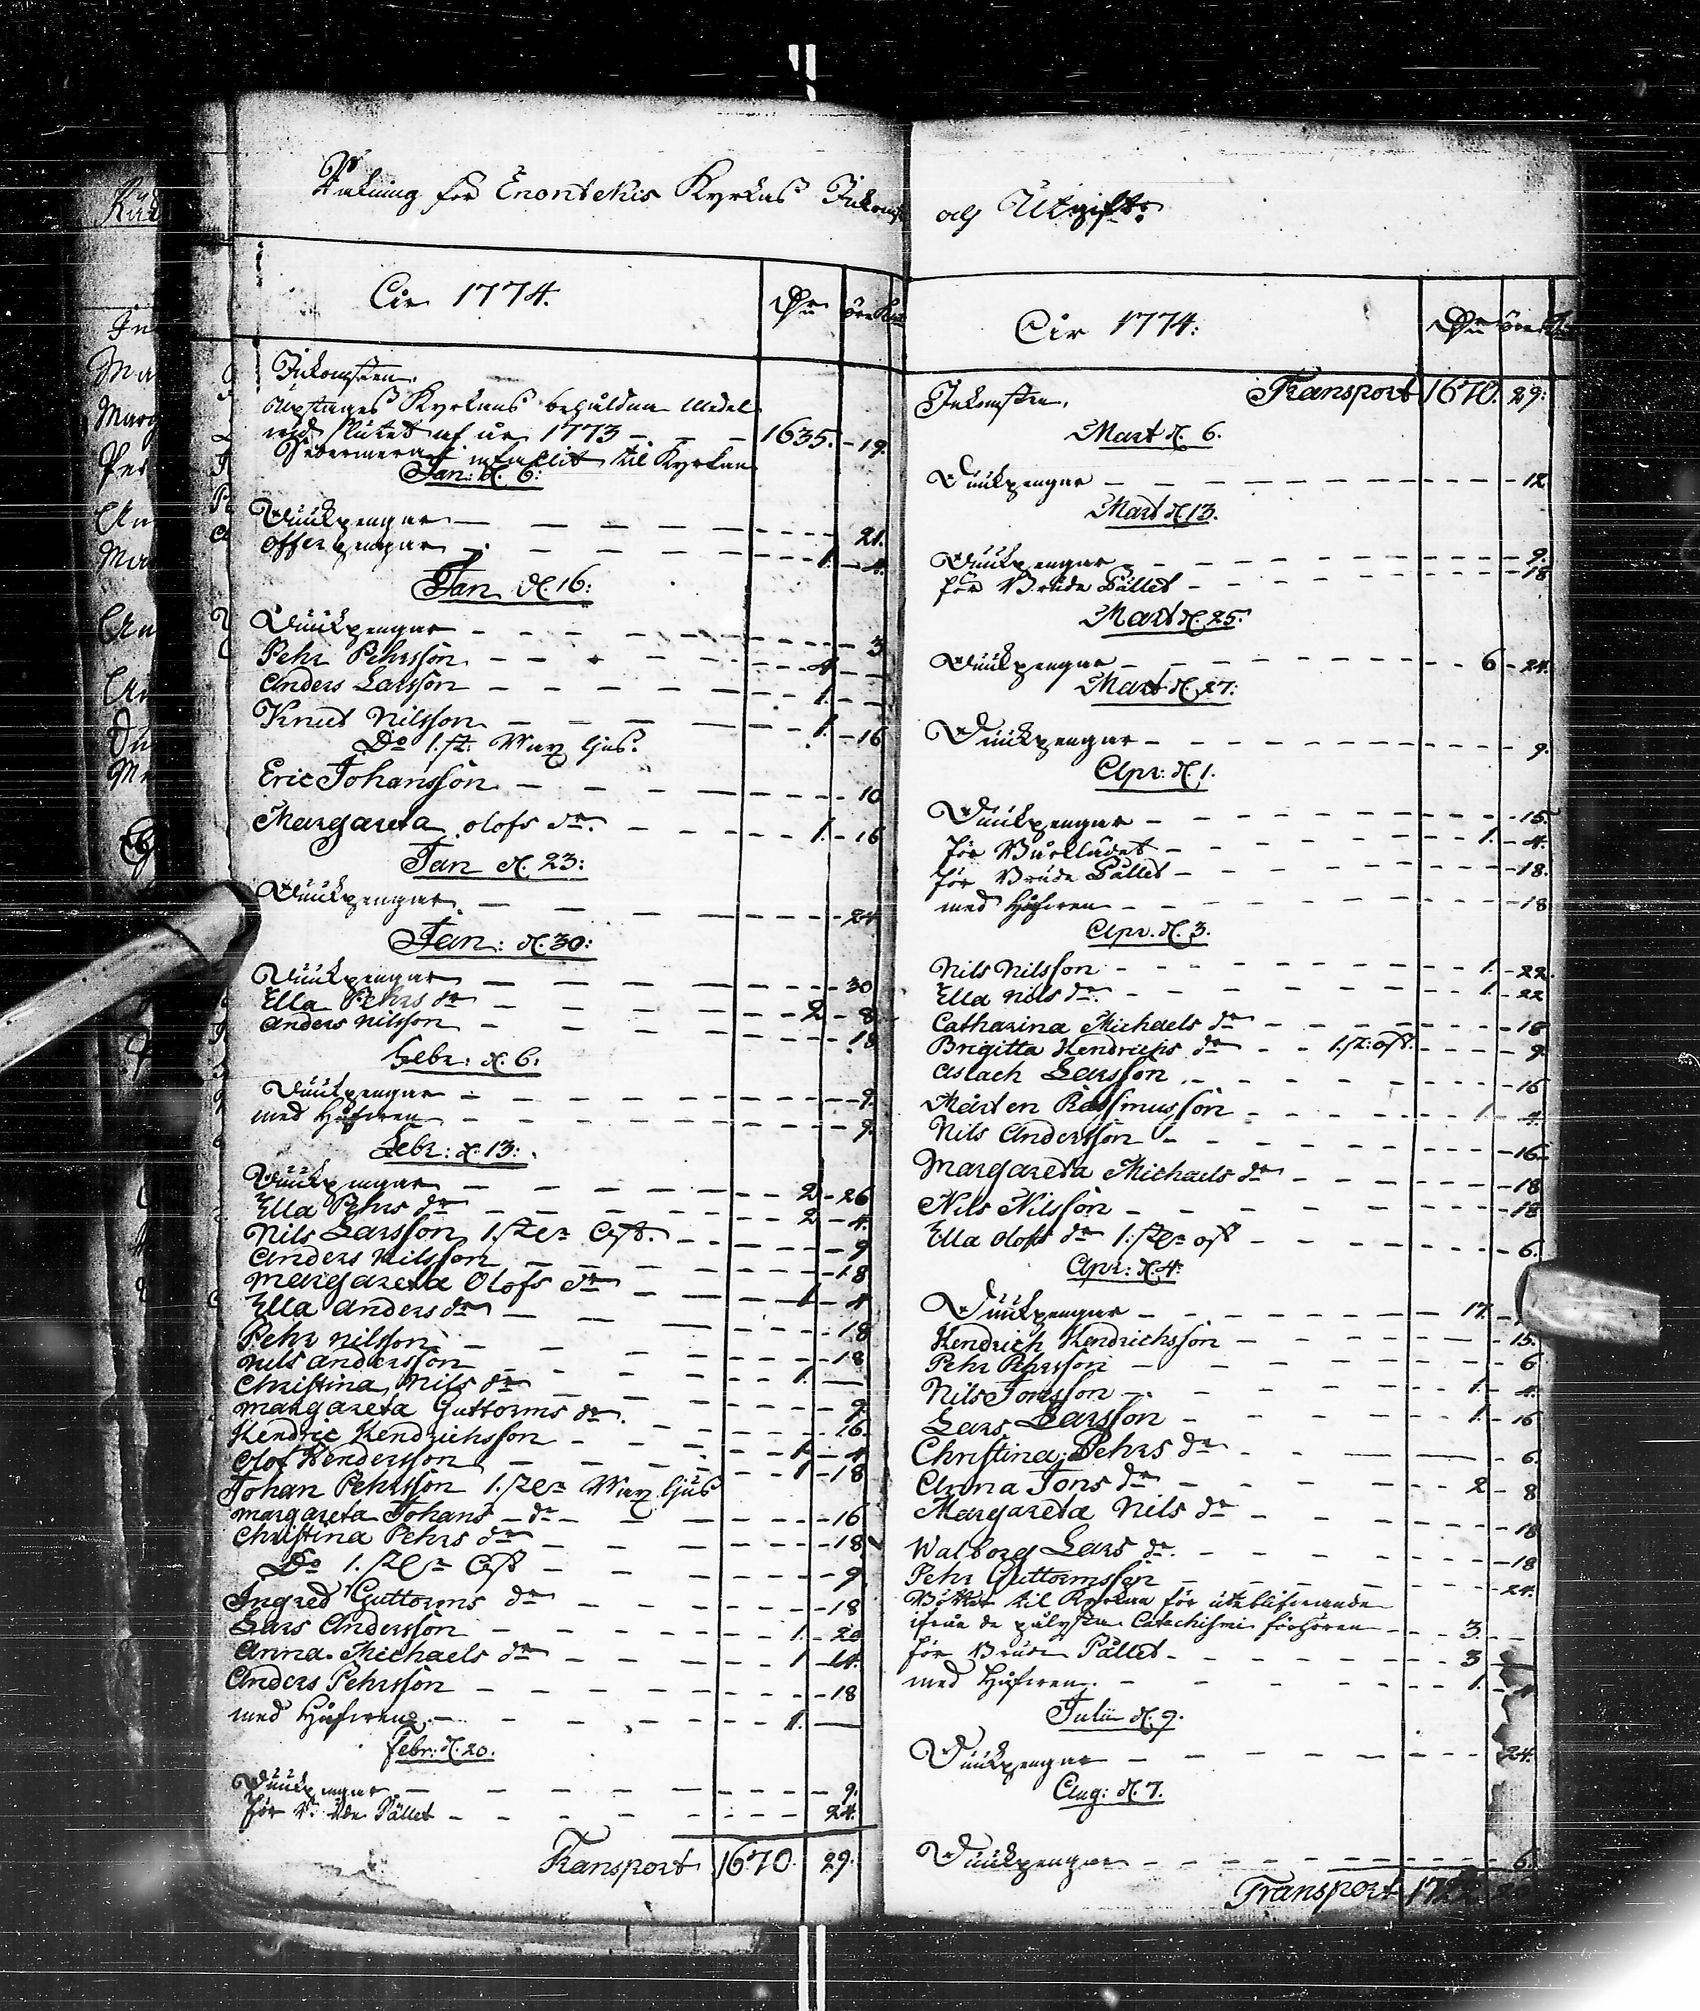 Räkning för Enontekis Kyrkas Inkomst
År 1774.
Inkomsten.
Uptages Kyrkans behåldna Medel
wid slutet af år 1773 - - - 1635. - 19.
Yttermera influtit til Kyrkan
Jan: d. 6:
Püükpengar - - - 21.
Offerpengar - - - 1. - 4.
Jan d. 16:
Püükpengar - - - 3
Pehr Pehrsson - - - 4 - -
Anders Larsson - - - 1. - -
Knut Nilsson - - - 1. - 16
Do 1. st. Wax ljus.
Eric Johansson - - - 10
Margareta olofs dr. - - - 1. - 16
Jan d. 23:
Püükpengar - - - 24
Jan: d. 30:
Püükpengar - - - 30
Ella Pehrs dr - - - 2 - 8
Anders Nilsson - - - 18
Febr: d. 6:
Püükpengar - - - 9.
med Håfwen - - - 9.
Febr: d. 13:
Püükpengar - - - 2 - 26
Ella Pehrs dr - - - 2 - 4.
Nils Larsson 1. st Ren Ost. - - - 9
Anders Nilsson - - - 18
Margareta Olofs dr - - - 1 - 4
Ella Anders dr - - - 18
Pehr Nilsson - - - 18
Nils Andersson - - - 1. -
Christina Nils dr - - - 9.
Margareta Guttorms dr. - - - 16.
Hendric Hendrichsson - - - 1 - 4
Olof Hendersson - - - 1 - 18
Johan Pehrsson 1. st Wax ljus
Margareta Johans dr - - - 16
Christina Pehrs dr - - - 18
Do 1. st Ren Ost - - - 9
Ingred Guttorms dr - - - 18
Lars Andersson - - - 1. - 20
Anna Michaels dr - - - 1 - 14.
Anders Pehrsson - - - 18
med Håfwen - - - 1. -
Febr: d. 20.
Püükpengar - - - 9.
för Brüde Pället - - - 24.
Transport 1670. 29.
och Utgifter
År 1774:
Inkomsten. Transport 1670. 29:
Mart d. 6.
Püükpengar - - - 12
Mart d. 13.
Püükpengar - - - 9.
för Brüde Pället - - - 18
Mart d. 25.
Püükpengar - - - 6 - 24.
Mart d. 27:
Püükpengar - - - 9.
Apr: d. 1.
Püükpengar - - - 15.
för Bårklädet - - - 1. - 4.
för Brüde Pället - - - 18.
med Håfwen - - - 18
Apr. d. 3.
Nils Nilsson - - - 1. - 22.
Ella Nils dr. - - - 1. - 22
Catharina Michaels dr - - - 18
Brigitta Hendrichs dr - - 1. st: ost. - - - 9.
Aslach Larsson - - - 16
Mårten Rassmusson - - - 1 - 4.
Nils Andersson - - - 16
Margareta Michaels dr - - - 18
Nils Nilsson - - - 18
Ella Olofs dr 1. st Ren ost - - - 6.
Apr: d. 4:
Püükpengar - - - 17.
Hendrich Hendrichsson - - - 15.
Pehr Pehrsson - - - 6
Nils Jonsson - - - 1. - 4.
Lars Larsson - - - 1. - 16
Christina Pehrs dr - - - 6.
Anna Jons dr - - - 2 - 8
Margareta Nils dr - - - 18
Walborg Lars dr. - - - 18
Pehr Guttormsson - - - 24.
Böter til Kyrkan för uteblifwande
ifrån de pålyste Catechismi förhören - - - 3. - -
för Brüde Pället - - - 3
med Håfwen - - - 1.
Julii d. 9.
Püükpengar - - - 24.
Aug: d. 7.
Püükpengar - - - 6.
Transport